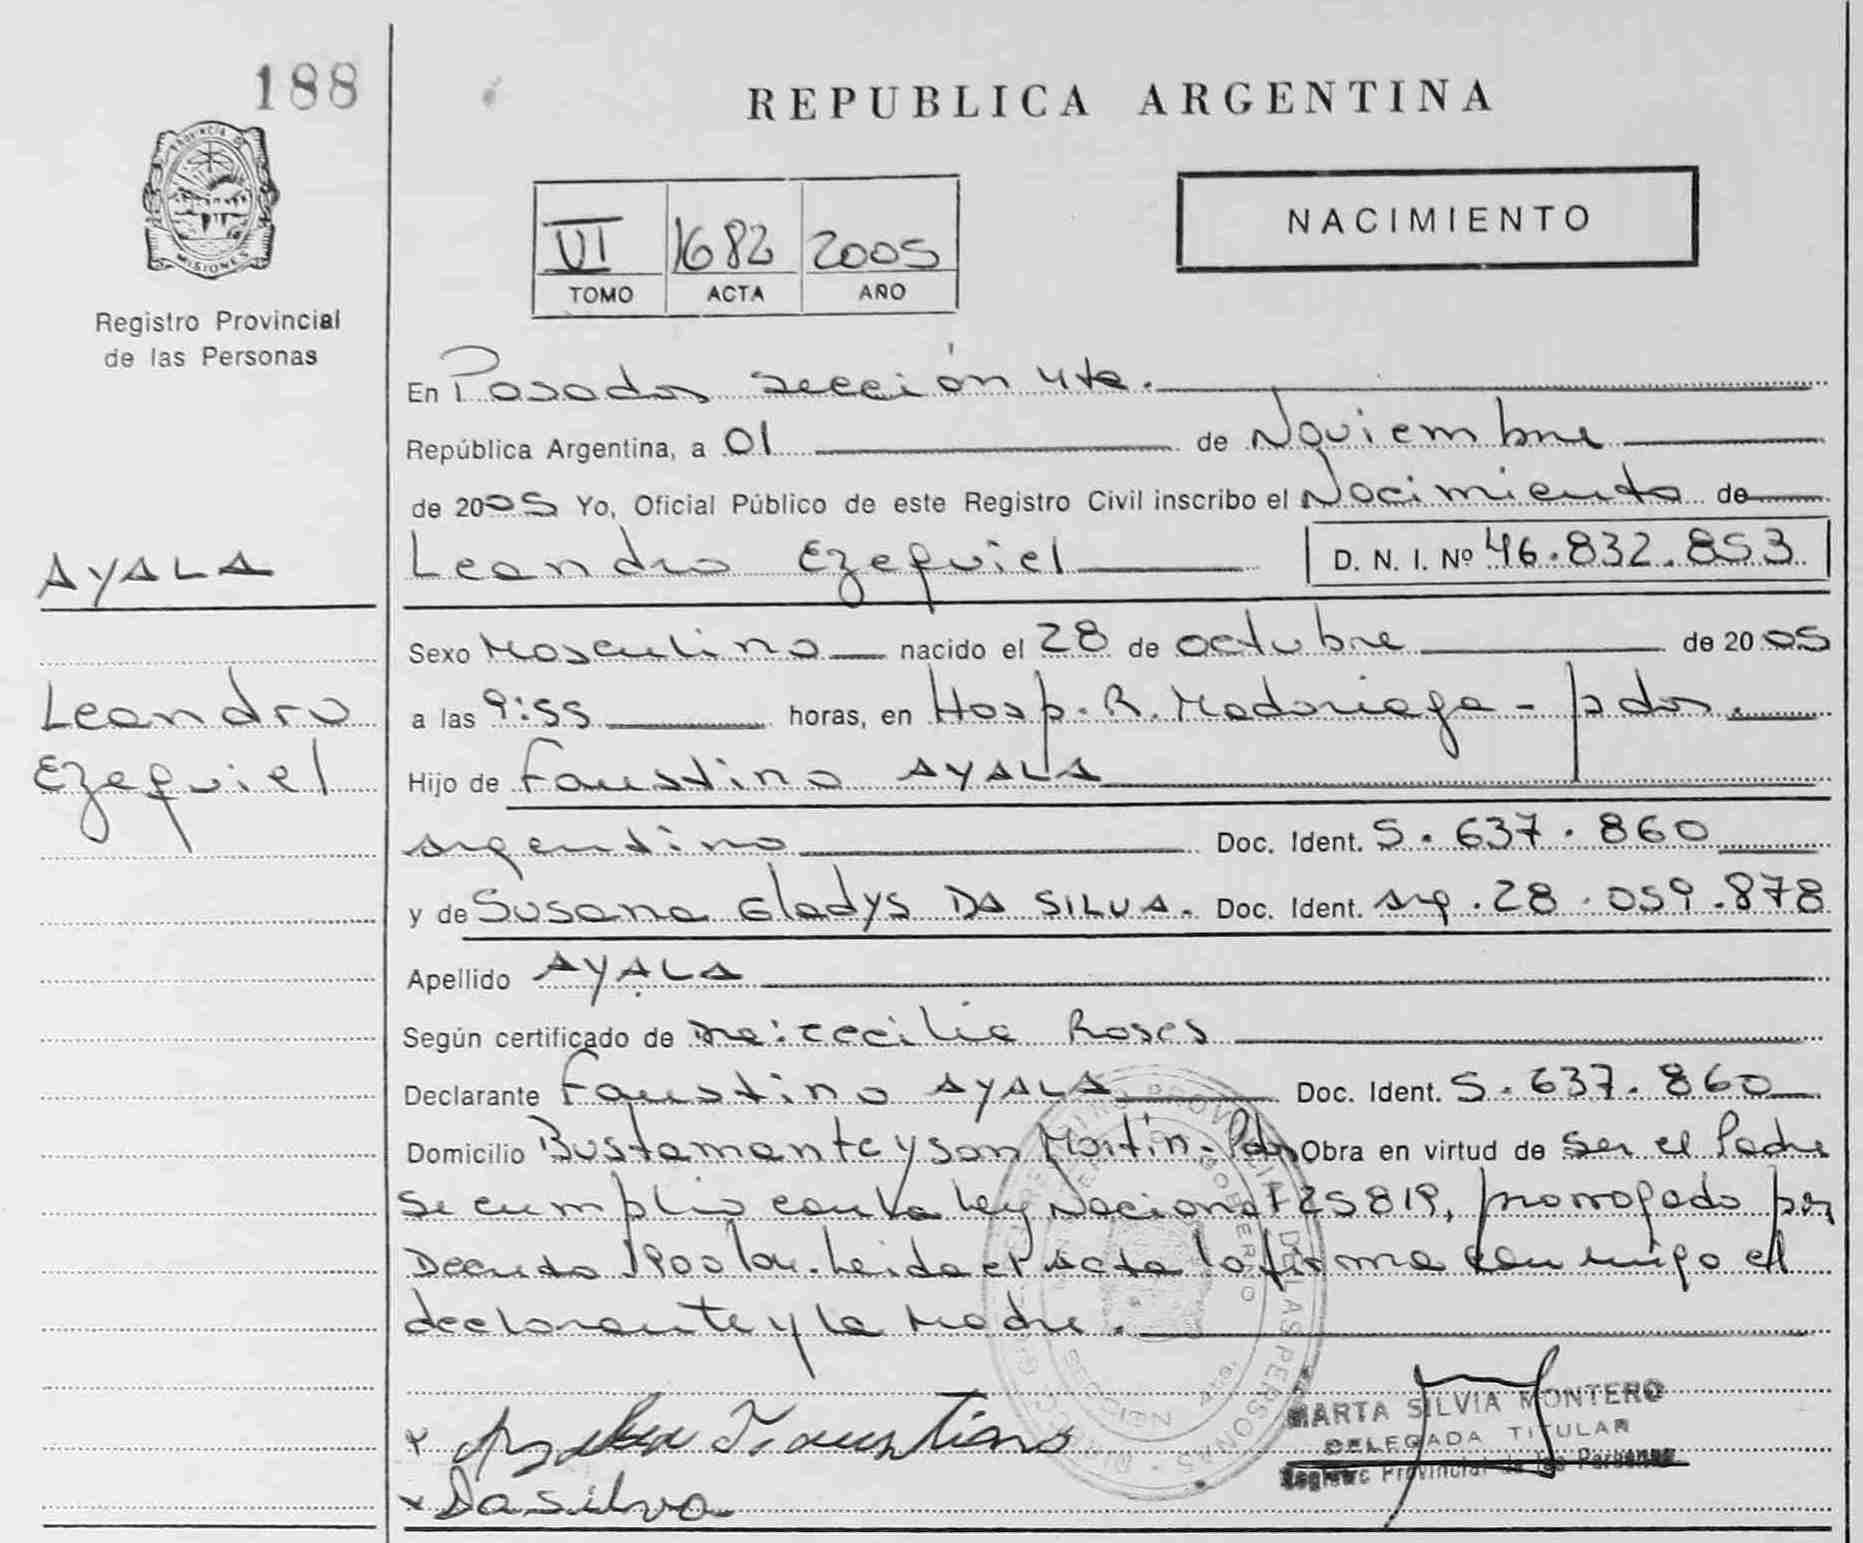 188
PROVINCIA DE
MISIONES
Registro Provincial
de las Personas
REPUBLICA ARGENTINA
VI 1682 2005
TOMO ACTA AÑO
NACIMIENTO
En Posadas sección 4ta.
República Argentina, a 01 de Noviembre
de 2005 Yo, Oficial Público de este Registro Civil inscribo el Nacimiento de
AYALA
Leandro Ezequiel D. N. I. Nº 46.832.853
Sexo Masculino nacido el 28 de octubre de 2005
Leandro
a las 9:55 horas, en Hosp. R. Madariaga - pdas.
Ezequiel
Hijo de Faustino AYALA
argentino Doc. Ident. 5.637.860
y de Susana Gladys DA SILVA. Doc. Ident. arg. 28.059.878
Apellido AYALA
Según certificado de Cecilia Roses
Declarante Faustino AYALA Doc. Ident. 5.637.860
Domicilio Bustamante y San Martín - Pdas Obra en virtud de ser el Padre
se cumplio con la ley Nacional 25819, prorrogado por
Decreto 1900/04. Leida el acta la firma conmigo el
declarante y la Madre.
MARTA SILVIA MONTERO
DELEGADA TITULAR
Registro Provincial de las Personas
x Ayala Faustino
x Da silva